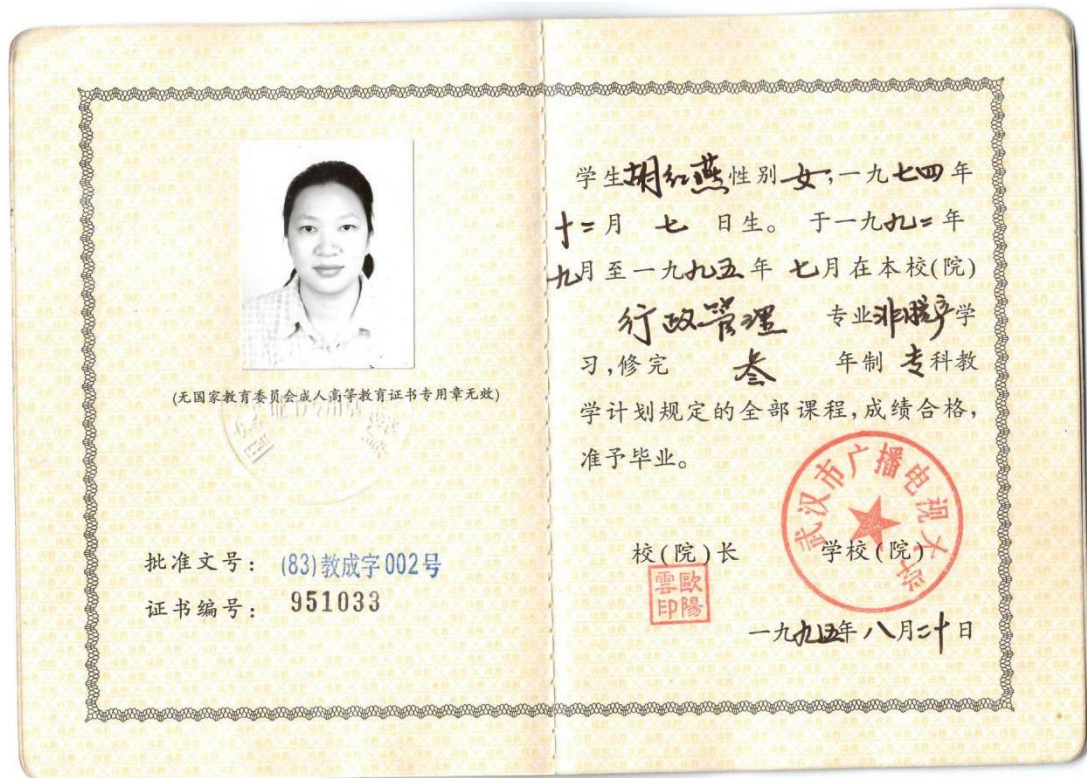 (无国家教育委员会成人高等教育证书专用章无效)
批准文号: (83)教成字002号
证书编号: 951033
学生胡红燕性别女,一九七四年
十二月 七 日生。 于一九九二年
九月至一九九五年 七月在本校(院)
行政管理 专业非脱产学
习,修完 叁 年制 专科教
学计划规定的全部课程,成绩合格,
准予毕业。
武汉市广播电视大学
校(院)长 学校(院)
歐陽雲印
一九九五年八月二十日